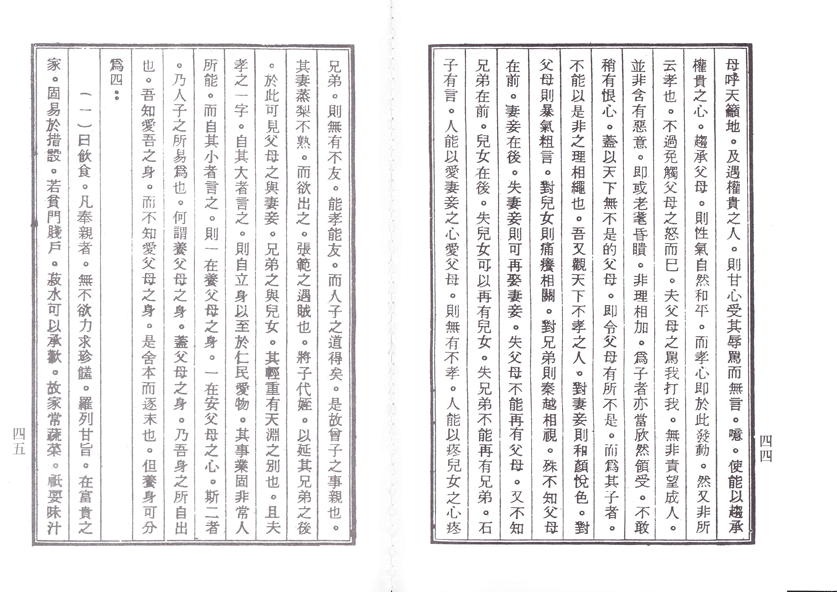 母呼天籲地。及遇權貴之人。則甘心受其辱罵而無言。噫。使能以趨承
權貴之心。趨承父母。則性氣自然和平。而孝心即於此發動。然又非所
云孝也。不過免觸父母之怒而已。夫父母之罵我打我。無非責望成人。
並非含有惡意。即或老耄昏瞶。非理相加。爲子者亦當欣然領受。不敢
稍有恨心。蓋以天下無不是的父母。即令父母有所不是。而爲其子者。
不能以是非之理相繩也。吾又觀天下不孝之人。對妻妾則和顏悅色。對
父母則暴氣粗言。對兒女則痛癢相關。對兄弟則秦越相視。殊不知父母
在前。妻妾在後。失妻妾則可再娶妻妾。失父母不能再有父母。又不知
兄弟在前。兒女在後。失兒女可以再有兒女。失兄弟不能再有兄弟。石
子有言。人能以愛妻妾之心愛父母。則無有不孝。人能以疼兒女之心疼
四四
兄弟。則無有不友。能孝能友。而人子之道得矣。是故曾子之事親也。
其妻蒸梨不熟。而欲出之。張範之遇賊也。將子代姪。以延其兄弟之後
。於此可見父母之與妻妾。兄弟之與兒女。其輕重有天淵之別也。且夫
孝之一字。自其大者言之。則自立身以至於仁民愛物。其事業固非常人
所能。而自其小者言之。則一在養父母之身。一在安父母之心。斯二者
。乃人子之所易爲也。何謂養父母之身。蓋父母之身。乃吾身之所自出
也。吾知愛吾之身。而不知愛父母之身。是舍本而逐末也。但養身可分
爲四：
（一）曰飲食。凡奉親者。無不欲力求珍饈。羅列甘旨。在富貴之
家。固易於措設。若貧門賤戶。菽水可以承歡。故家常蔬菜。祇要味汁
四五